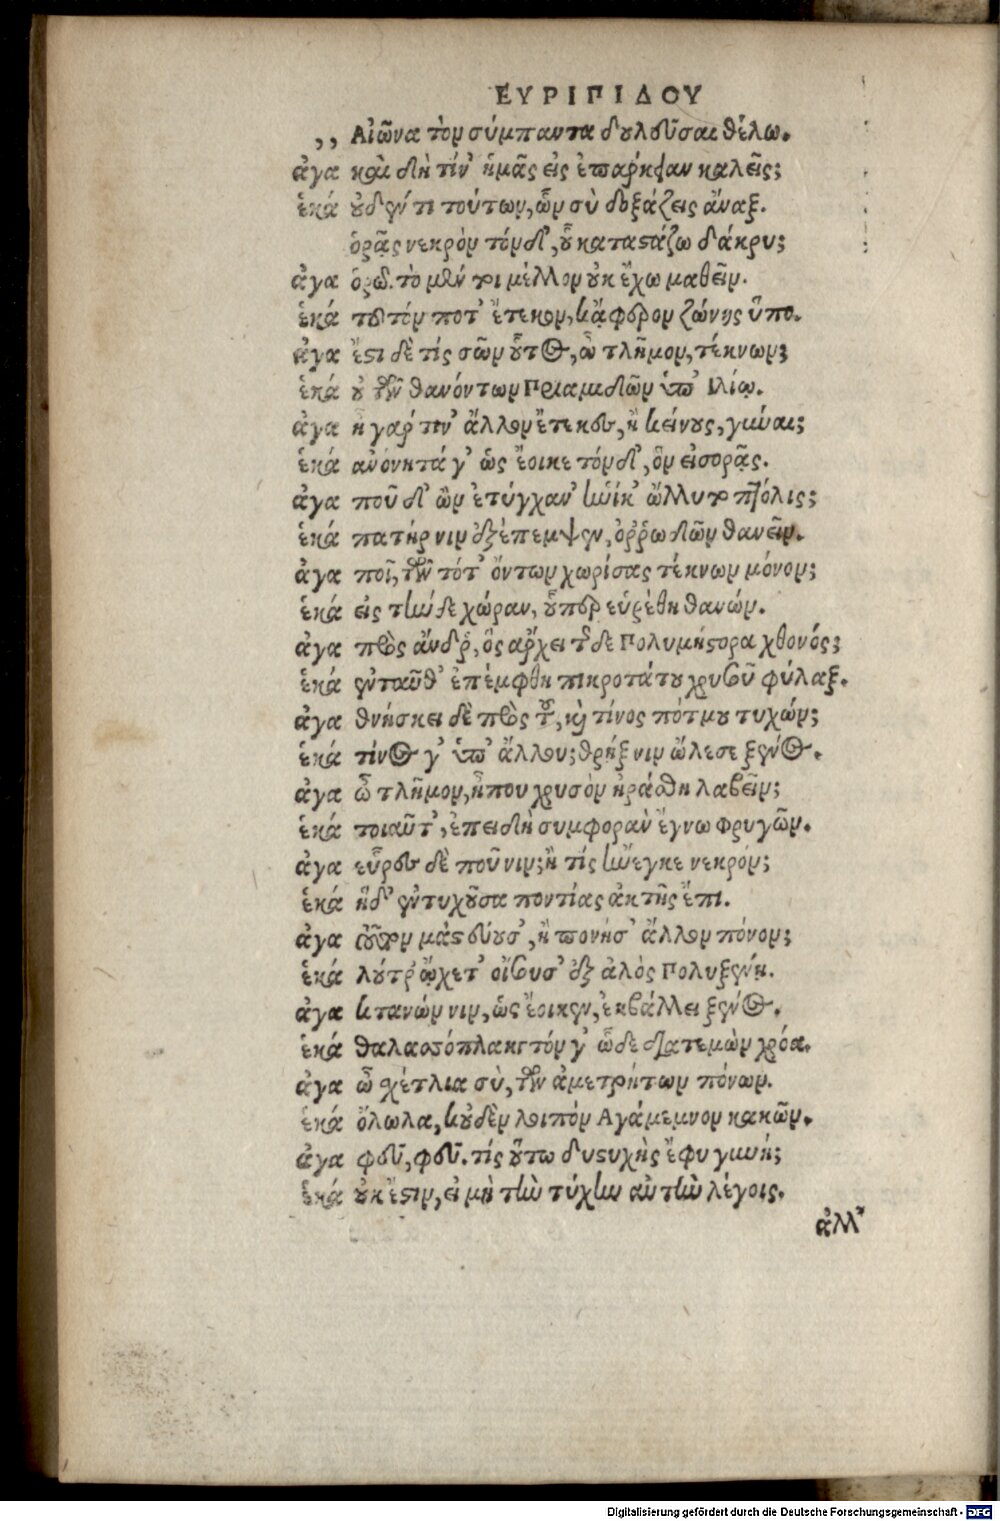 ΕΥΡΙΠΙΔΟΥ
,, Αἰῶνα τὸν σύμπαντα δουλεῦσαι θέλω.
ἀγα καὶ δὴ τίν' ἡμᾶς εἰς ἐπάρκεσαν καλεῖς;
ἑκά οὐδέν τι τούτων, ὧν σὺ δοξάζεις ἄναξ.
ὁρᾷς νεκρὸν τόνδ', οὗ καταστάζω δάκρυ;
ἀγα ὁρῶ. τὸ μέν τοι μέλλον οὐκ ἔχω μαθεῖν.
ἑκά τοῦτόν ποτ' ἔτεκον, κᾄφερον ζώνης ὕπο.
ἀγα ἔστι δὲ τίς σῶν οὗτος, ὦ τλῆμον, τέκνων;
ἑκά οὐ τῶν θανόντων Πριαμιδῶν ὑπ' Ιλίῳ.
ἀγα ἦ γάρ τιν' ἄλλον ἔτεκες, ἢ κείνους, γύναι;
ἑκά ἀνόνητά γ' ὡς ἔοικε τόνδ', ὃν εἰσορᾷς.
ἀγα ποῦ δ' ὢν ἐτύγχαν' ἡνίκ' ὤλλυτο πτόλις;
ἑκά πατήρ νιν ἐξέπεμψεν, ὀῤῥωδῶν θανεῖν.
ἀγα ποῖ, τῶν τότ' ὄντων χωρίσας τέκνων μόνον;
ἑκά εἰς τήνδε χώραν, οὗπερ εὑρέθη θανών.
ἀγα πρὸς ἄνδρ', ὃς ἄρχει τῆσδε Πολυμήστορα χθονός;
ἑκά ἐνταῦθ' ἐπέμφθη πικροτάτου χρυσοῦ φύλαξ.
ἀγα θνήσκει δὲ πρὸς τοῦ, καὶ τίνος πότμου τυχών;
ἑκά τίνος γ' ὑπ' ἄλλου; θρῄξ νιν ὤλεσε ξένος.
ἀγα ὦ τλῆμον, ἦπου χρυσὸν ἠράσθη λαβεῖν;
ἑκά τοιαῦτ', ἐπειδὴ συμφορὰν ἔγνω φρυγῶν.
ἀγα εὗρες δὲ ποῦ νιν; ἢ τίς ἤνεγκε νεκρόν;
ἑκά ἥδ' ἐντυχοῦσα ποντίας ἀκτῆς ἔπι.
ἀγα τοῦτον μαστεύουσ', ἢ πονοῦσ' ἄλλον πόνον;
ἑκά λούτρ' ᾤχετ' οἴσουσ' ἐξ ἁλὸς Πολυξένῃ.
ἀγα κτανών νιν, ὡς ἔοικεν, ἐκβάλλει ξένος.
ἑκά θαλασσόπλακτόν γ' ὧδε διατεμὼν χρόα.
ἀγα ὦ σχέτλια σὺ, τῶν ἀμετρήτων πόνων.
ἑκά ὄλωλα, κοὐδὲν λοιπὸν Αγάμεμνον κακῶν.
ἀγα φεῦ, φεῦ. τίς οὕτω δυστυχὴς ἔφυ γυνή;
ἑκά οὐκ ἔστιν, εἰ μὴ τὴν τύχην αὐτὴν λέγοις.
ἀλλ'
Digitalisierung gefördert durch die Deutsche Forschungsgemeinschaft - DFG